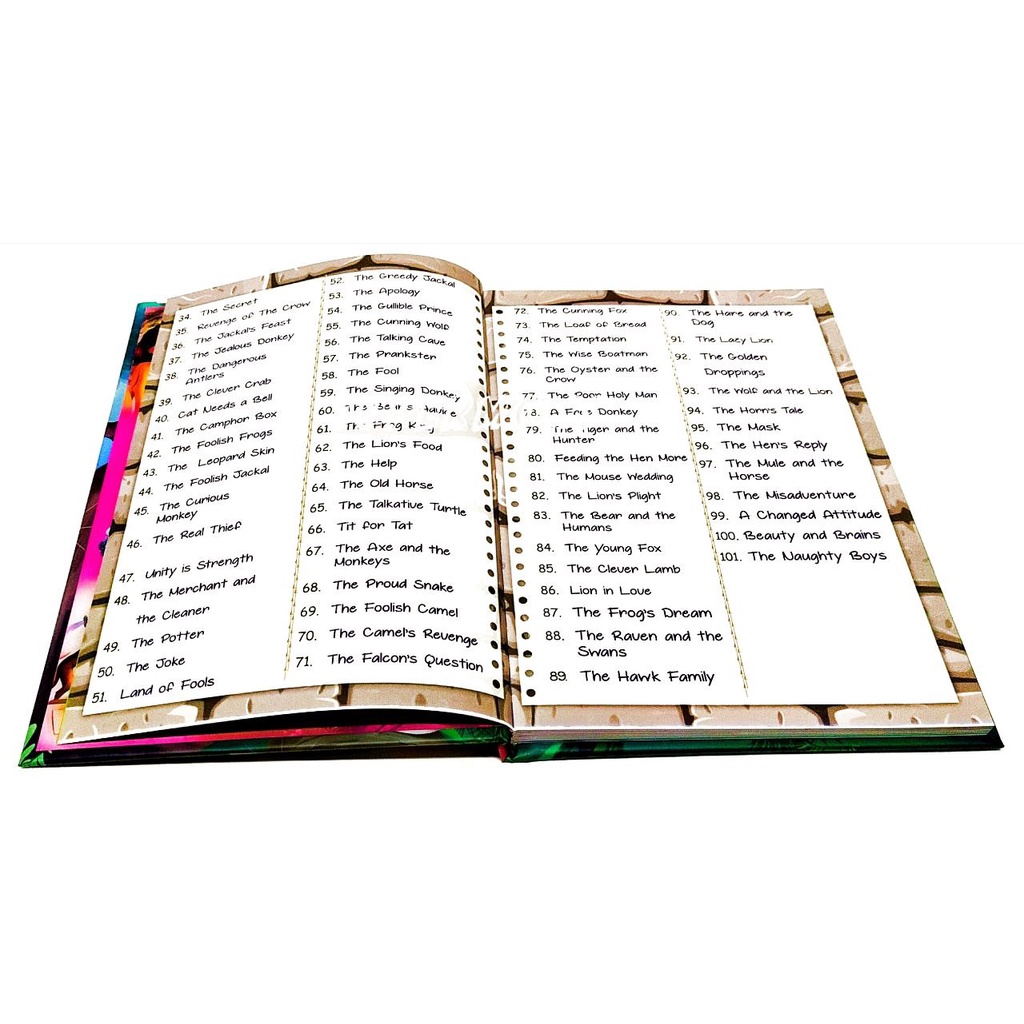 34. The Secret
35. Revenge of The Crow
36. The Jackal's Feast
37. The Jealous Donkey
38. The Dangerous
Antlers
39. The Clever Crab
40. Cat Needs a Bell
41. The Camphor Box
42. The Foolish Frogs
43. The Leopard Skin
44. The Foolish Jackal
45. The Curious
Monkey
46. The Real Thief
47. Unity is Strength
48. The Merchant and
the Cleaner
49. The Potter
50. The Joke
51. Land of Fools
52. The Greedy Jackal
53. The Apology
54. The Gullible Prince
55. The Cunning Wolf
56. The Talking Cave
57. The Prankster
58. The Fool
59. The Singing Donkey
60. The
61. The Frog
62. The Lion's Food
63. The Help
64. The Old Horse
65. The Talkative Turtle
66. Tit for Tat
67. The Axe and the
Monkeys
68. The Proud Snake
69. The Foolish Camel
70. The Camel's Revenge
71. The Falcon's Question
72. The Cunning Fox
73. The Loaf of Bread
74. The Temptation
75. The Wise Boatman
76. The Oyster and the
Crow
77. The Poor Holy Man
78. A Donkey
79. The Tiger and the
Hunter
80. Feeding the Hen More
81. The Mouse Wedding
82. The Lion's Plight
83. The Bear and the
Humans
84. The Young Fox
85. The Clever Lamb
86. Lion in Love
87. The Frog's Dream
88. The Raven and the
Swans
89. The Hawk Family
90. The Hare and the
Dog
91. The Lazy Lion
92. The Golden
Droppings
93. The Wolf and the Lion
94. The Horn's Tale
95. The Mask
96. The Hen's Reply
97. The Mule and the
Horse
98. The Misadventure
99. A Changed Attitude
100. Beauty and Brains
101. The Naughty Boys